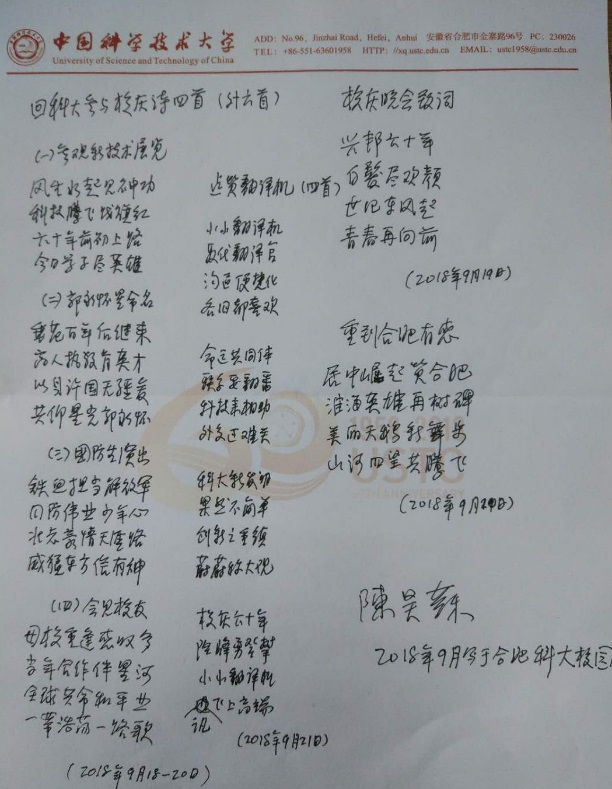 中国科学技术大学
University of Science and Technology of China
ADD: No.96, Jinzhai Road, Hefei, Anhui 安徽省合肥市金寨路96号 PC: 230026
TEL: +86-551-63601958 HTTP: //xq.ustc.edu.cn EMAIL: ustc1958@ustc.edu.cn
回科大参与校庆诗四首（外六首）
(一) 参观新技术展览
风生水起见神功
科技腾飞战旗红
六十年前初上路
今日学子尽英雄
(二) 郭永怀星命名
百年后继来
为人执教育英才
以身许国无疆爱
共仰星光郭永怀
(三) 国防生演出
铁担当解放军
国防伟业少年心
豪情天涯路
威猛东方信有神
(四) 会见校友
母校重逢感叹多
当年合作伴星河
全球共命和平业
一带浩荡一路歌
(2018年9月18-20日)
点赞翻译机（四首）
小小翻译机
取代翻译官
沟通便捷化
各国都喜欢
命运共同体
联系要翻番
科技来相助
外交过难关
科大新成功
果然不简单
创新之手领
蔚蔚称大观
校庆六十年
险峰勇登攀
小小翻译机
讯飞上高端
(2018年9月21日)
校庆晚会致词
兴邦六十年
白发尽欢颜
世纪东风起
青春再向前
(2018年9月19日)
重到合肥有感
居中崛起赞合肥
淮海英雄再树碑
美丽天鹅新舞步
山河四望共腾飞
(2018年9月20日)
陳昊蘇
2018年9月写于合肥科大校园